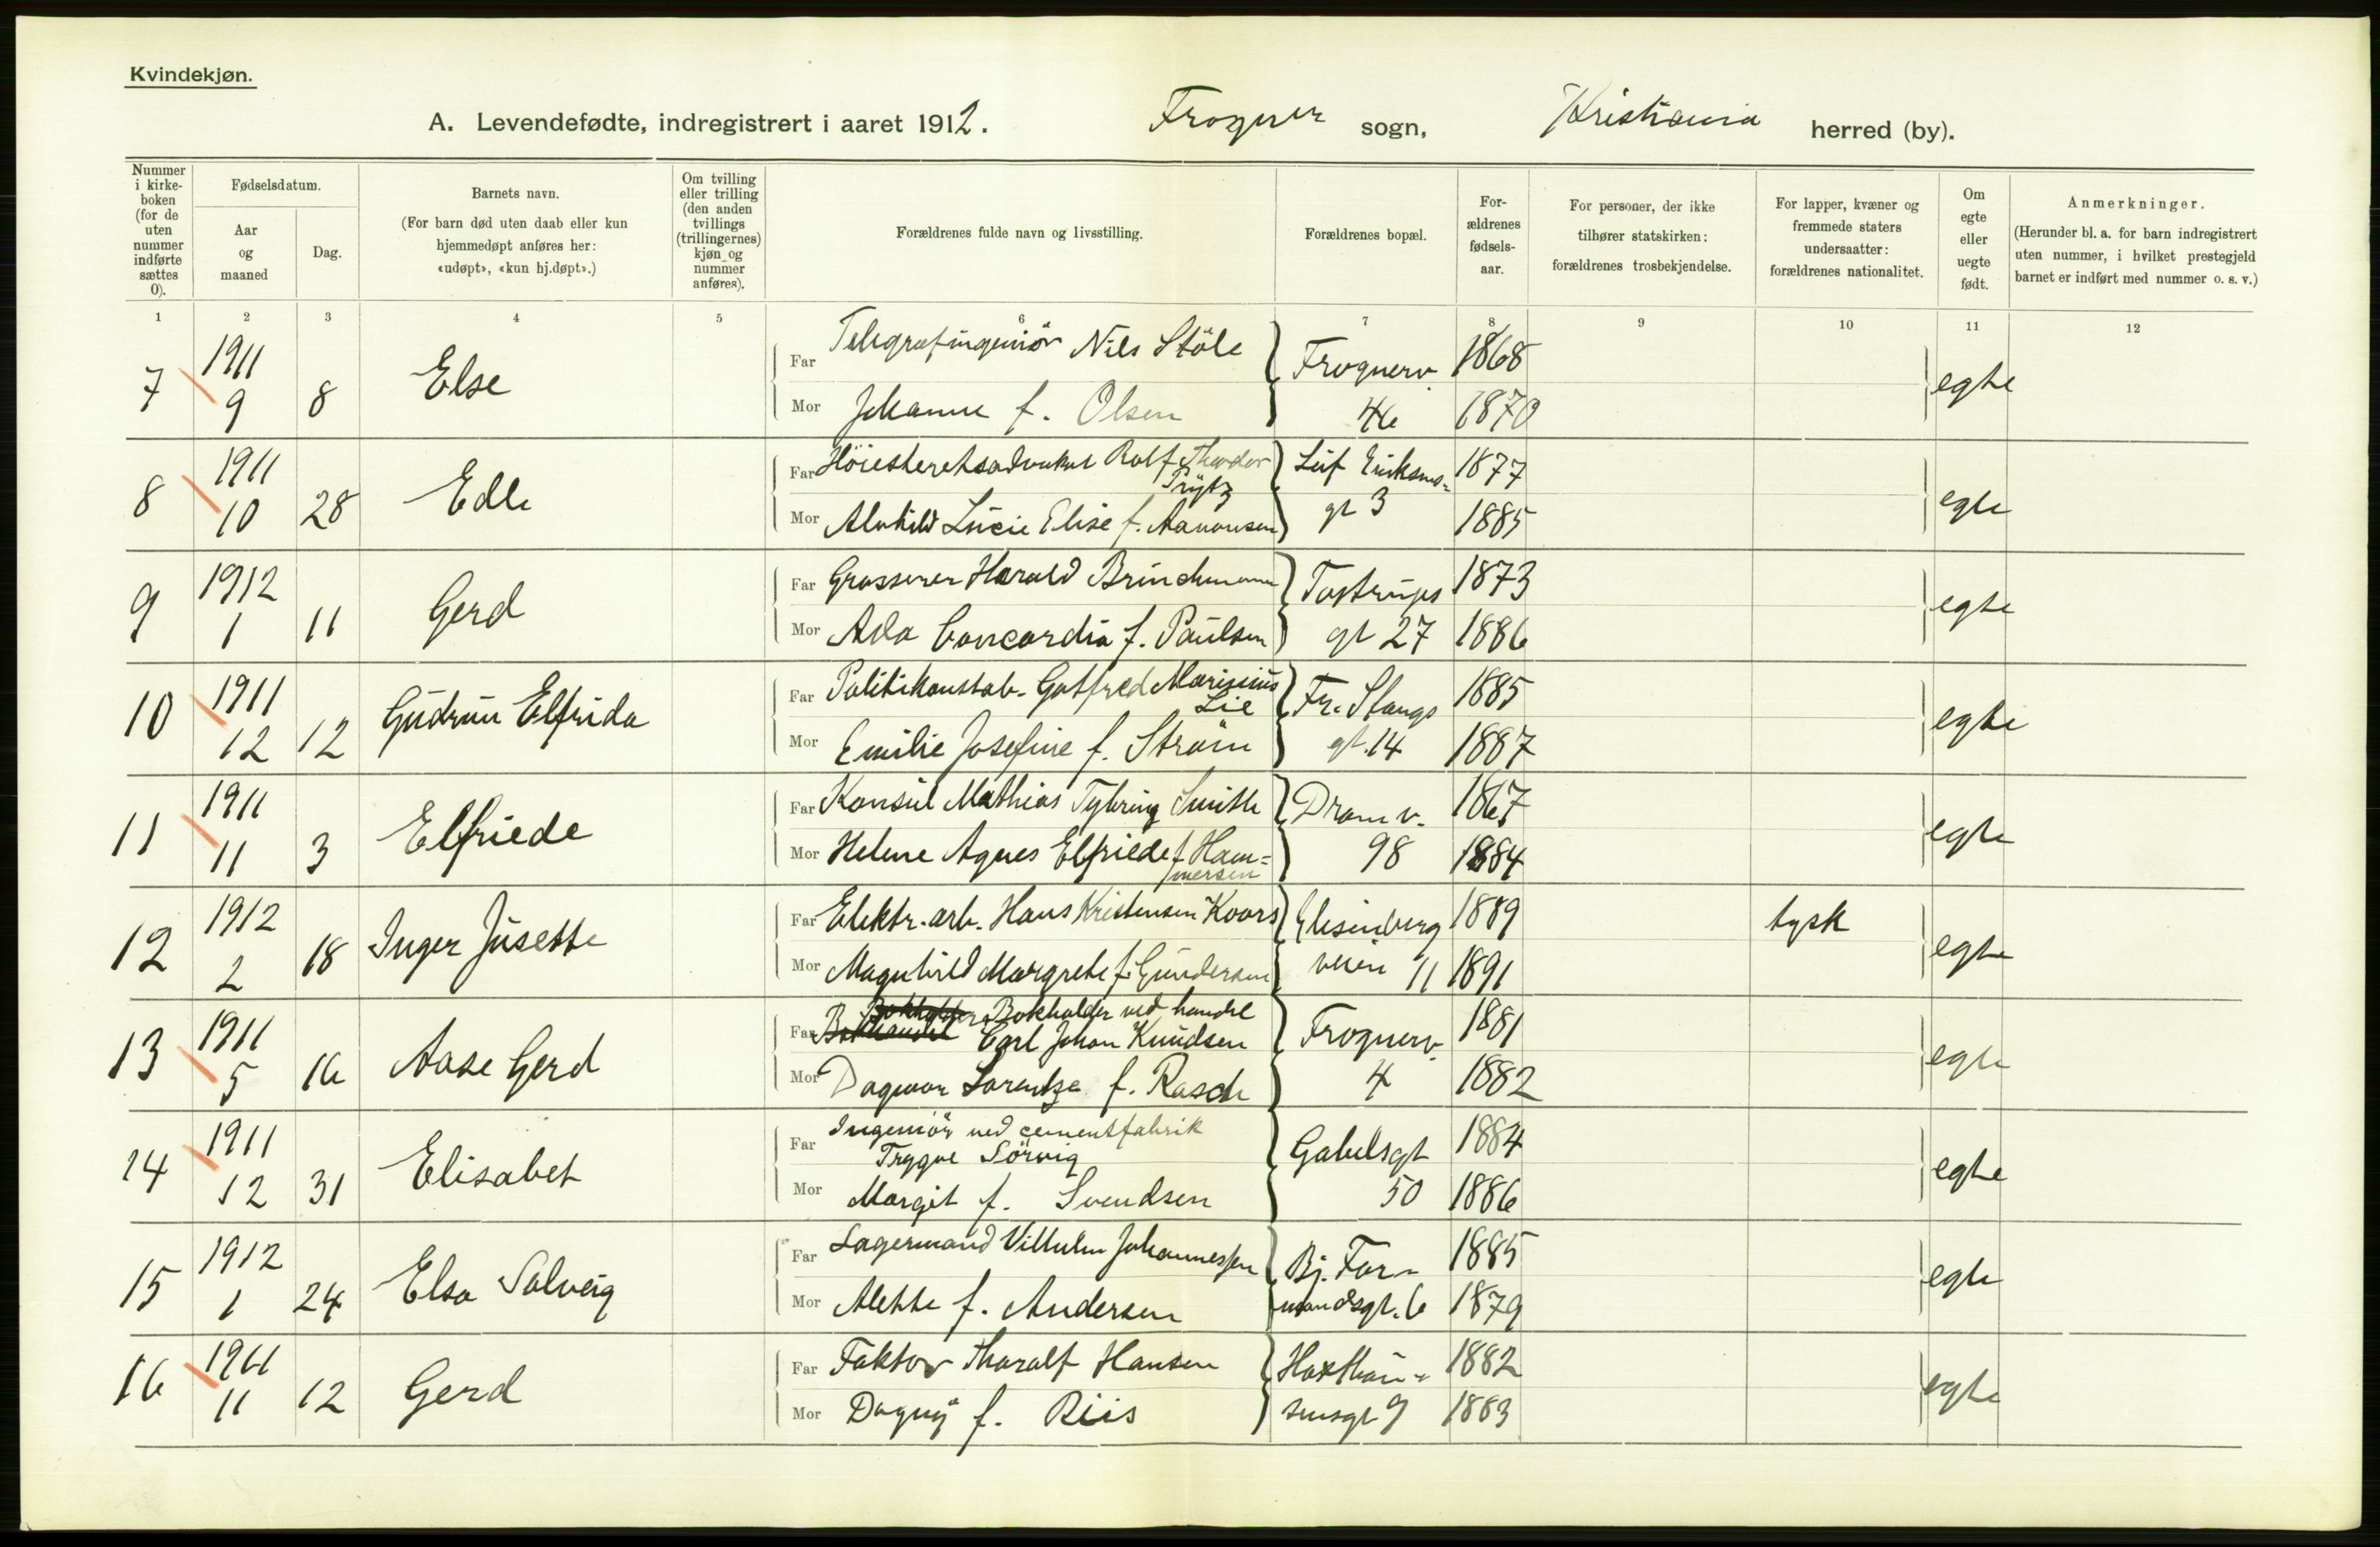 Kvindekjøn.
A. Levendefødte, indregistrert i aaret 1912. Frogner sogn, Kristiania herred (by).
Nummer i kirke- boken (for de uten nummer indførte sættes 0).
Fødselsdatum.
Aar og maaned
Dag.
Barnets navn.
(For barn død uten daab eller kun hjemmedøpt anføres her: «udøpt», «kun hj.døpt».)
Om tvilling eller trilling (den anden tvillings (trillingernes) kjøn og nummer anføres).
Forældrenes fulde navn og livsstilling.
Forældrenes bopæl.
For- ældrenes fødsels- aar.
For personer, der ikke tilhører statskirken: forældrenes trosbekjendelse.
For lapper, kvæner og fremmede staters undersaatter: forældrenes nationalitet.
Om egte eller uegte født.
Anmerkninger.
(Herunder bl. a. for barn indregistrert uten nummer, i hvilket prestegjeld barnet er indført med nummer o. s. v.)
1 2 3 4 5 6 7 8 9 10 11 12
7 1911 9 8 Else
Far Telegrafingeniör Nils Störle Frognerv. 1868
Mor Johanne f. Olsen 46 1870 egte
8 1911 10 28 Edle
Far Höiesteretsadvokat Rolf Thodor Prytz Leif Eriksens= 1877
Mor Alvhild Lucie Elise f. Aanonsen gt 3 1885 egte
9 1912 1 11 Gerd
Far Grosserer Harald Brinchmann Tostrups 1873
Mor Asla Concordia f. Paulsen gt 27 1886 egte
10 1911 12 12 Gudrun Elfrida
Far Politikonstab. Gotfred Marinius Lie Fr. Stangs 1885
Mor Emilie Josefine f. Ström gt. 14 1887 egte
11 1911 11 3 Elfriede
Far Konsul Mathias Tybring Smith Dramv. 1867
Mor Helene Agnes Elfriede f. Ham= mersen 98 1884 egte
12 1912 2 18 Inger Jusette
Far Elektr. arb. Hans Kristensen Koors Elisenberg 1889 tysk
Mor Magnhild Margrete f. Gundersen veien 11 1891 egte
13 1911 5 16 Aase Gerd
Far Bokholder Bokholder ved handel
Bokhandel Carl Johan Knudsen Frognerv. 1881
Mor Dagmar Lorentze f. Rasch 4 1882 egte
14 1911 12 31 Elisabet
Far Ingeniör ved cementfabrik
Trygve Sörvig Gabelsgt 1884
Mor Margit f. Svendsen 50 1886 egte
15 1912 1 24 Elsa Solveig
Far Lagermand Vilhelm Johannessen Bj. Far- 1885
Mor Alette f. Andersen mandsgt. 6 1879 egte
16 1911 11 12 Gerd
Far Faktor Tharalf Hansen Haxthau= 1882
Mor Dagny f. Riis sensgt 9 1883 egte